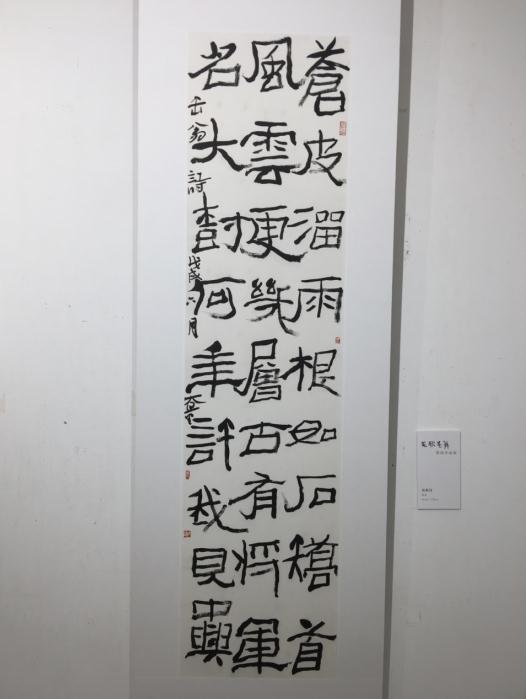 蒼皮溜雨根如石稽首
風雲更幾層古有將軍
名大樹何年許我見中興
缶翁詩 戊戌 月